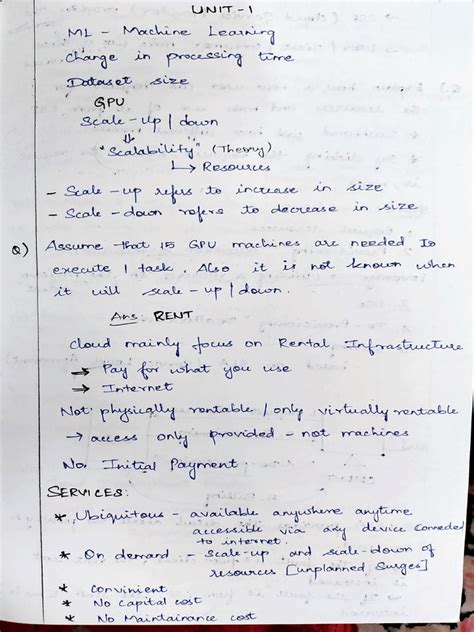 UNIT-1
ML - Machine Learning
Change in processing time
Dataset size
GPU
Scale-up | down
⇓
"Scalability" (Theory)
↳ Resources
- Scale-up refers to increase in size
- Scale-down refers to decrease in size
Q) Assume that 15 GPU machines are needed to
execute 1 task. Also it is not known when
it will scale-up | down.
Ans: RENT
Cloud mainly focus on Rental Infrastructure
→ Pay for what you use
→ Internet
Not physically rentable / only virtually rentable
→ access only provided - not machines
No Initial Payment
SERVICES:
* Ubiquitous - available anywhere anytime
accessible via any device connected
to internet.
* On demand - Scale-up and scale-down of
resources [unplanned, Surges]
* Convinient
* No Capital cost
* No Maintairance cost